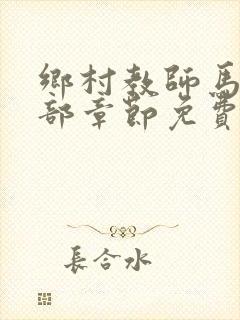 鄉村教師馬
部章節免費
長合水